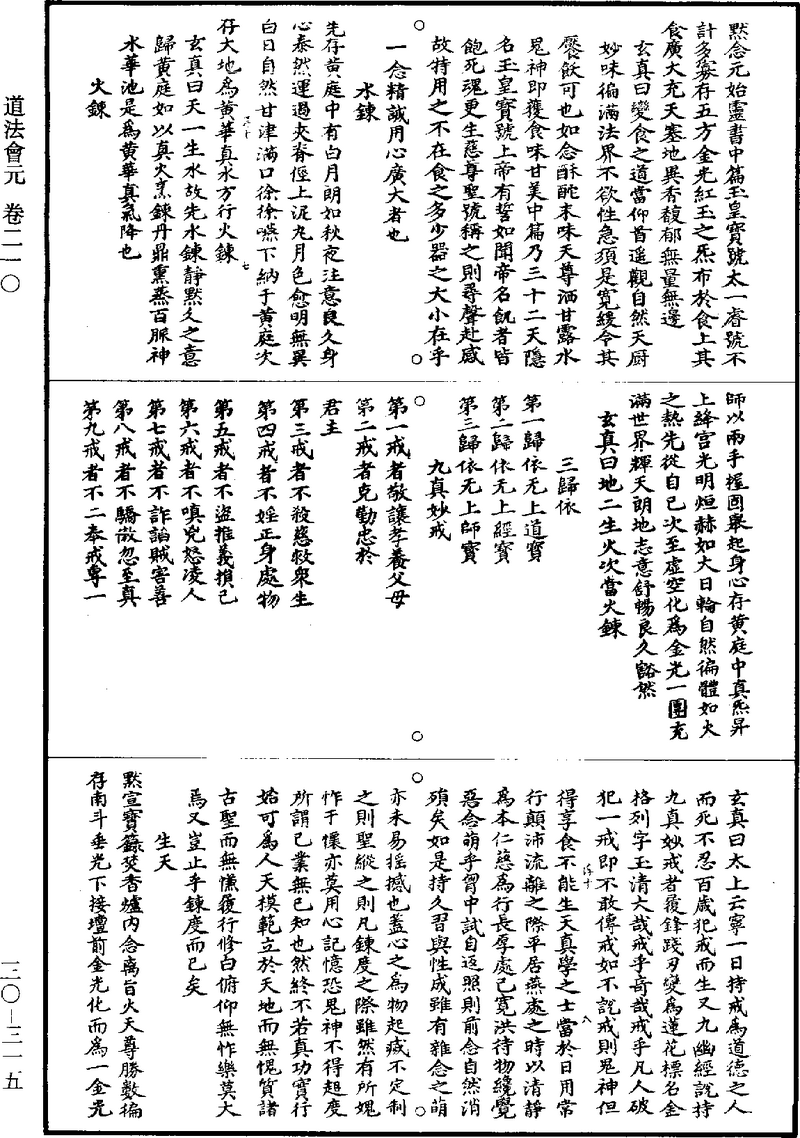 道法會元 卷二一〇
三〇—三一五
默念元始靈書中篇玉皇寶號太一睿號不
計多寡存五方金光紅玉之炁布於食上其
食廣大充天塞地異香馥郁無量無邊
玄真曰變食之道當仰首遥觀自然天厨
妙味徧滿法界不欲性急須是寬緩令其
饜飫可也如念酥酡末味天尊洒甘露水
鬼神即獲食味甘美中篇乃三十二天隱
名玉皇寶號上帝有誓如聞帝名飢者皆
飽死魂更生慈尊聖號稱之則尋聲赴感
故特用之不在食之多少器之大小在乎
一念精誠用心廣大者也
水鍊
先存黄庭中有白月朗如秋夜注意良久身
心泰然運過夾脊徑上泥丸月色愈明無異
白日自然甘津滿口徐徐嚥下納于黄庭次
存大地爲黄華真水方行火鍊
玄真曰天一生水故先水鍊靜默久之意
歸黄庭如以真火烹鍊丹鼎熏蒸百脈神
水華池是爲黄華真氣降也
火鍊
師以兩手握固舉起身心存黄庭中真炁昇
上絳宫光明烜赫如大日輪自然徧體如火
之熱先從自己次至虛空化爲金光一團充
滿世界輝天朗地志意舒暢良久豁然
玄真曰地二生火次當火鍊
三歸依
第一歸依无上道寶
第二歸依无上經寶
第三歸依无上師寶
九真妙戒
第一戒者敬讓孝養父母
第二戒者克勤忠於
君主
第三戒者不殺慈救衆生
第四戒者不婬正身處物
第五戒者不盗推義損己
第六戒者不嗔兇怒凌人
第七戒者不詐諂賊害善
第八戒者不驕傲忽至真
第九戒者不二奉戒專一
玄真曰太上云寧一日持戒爲道德之人
而死不忍百歲犯戒而生又九幽經說持
九真妙戒者履鋒踐刃變爲蓮花標名金
格列字玉清大哉戒乎奇哉戒乎凡人破
犯一戒即不敢傳戒如不說戒則鬼神但
得享食不能生天真學之士當於日用常
行顛沛流離之際平居燕處之時以清靜
爲本仁慈爲行長厚處己寬洪待物纔覺
惡念萌乎胷中試自返照則前念自然消
殞矣如是持久習與性成雖有雜念之萌
亦未易摇撼也蓋心之爲物起滅不定制
之則聖縱之則凡鍊度之際雖然有所媿
怍于懷亦莫用心記憶恐鬼神不得超度
所謂己業無己知也然終不若真功實行
始可爲人天模範立於天地而無愧質諸
古聖而無慊復行修白俯仰無怍樂莫大
焉又豈止乎鍊度而已矣
生天
默宣寶籙焚香爐内念離旨火天尊勝數徧
存南斗垂光下接壇前金光化而爲一金光